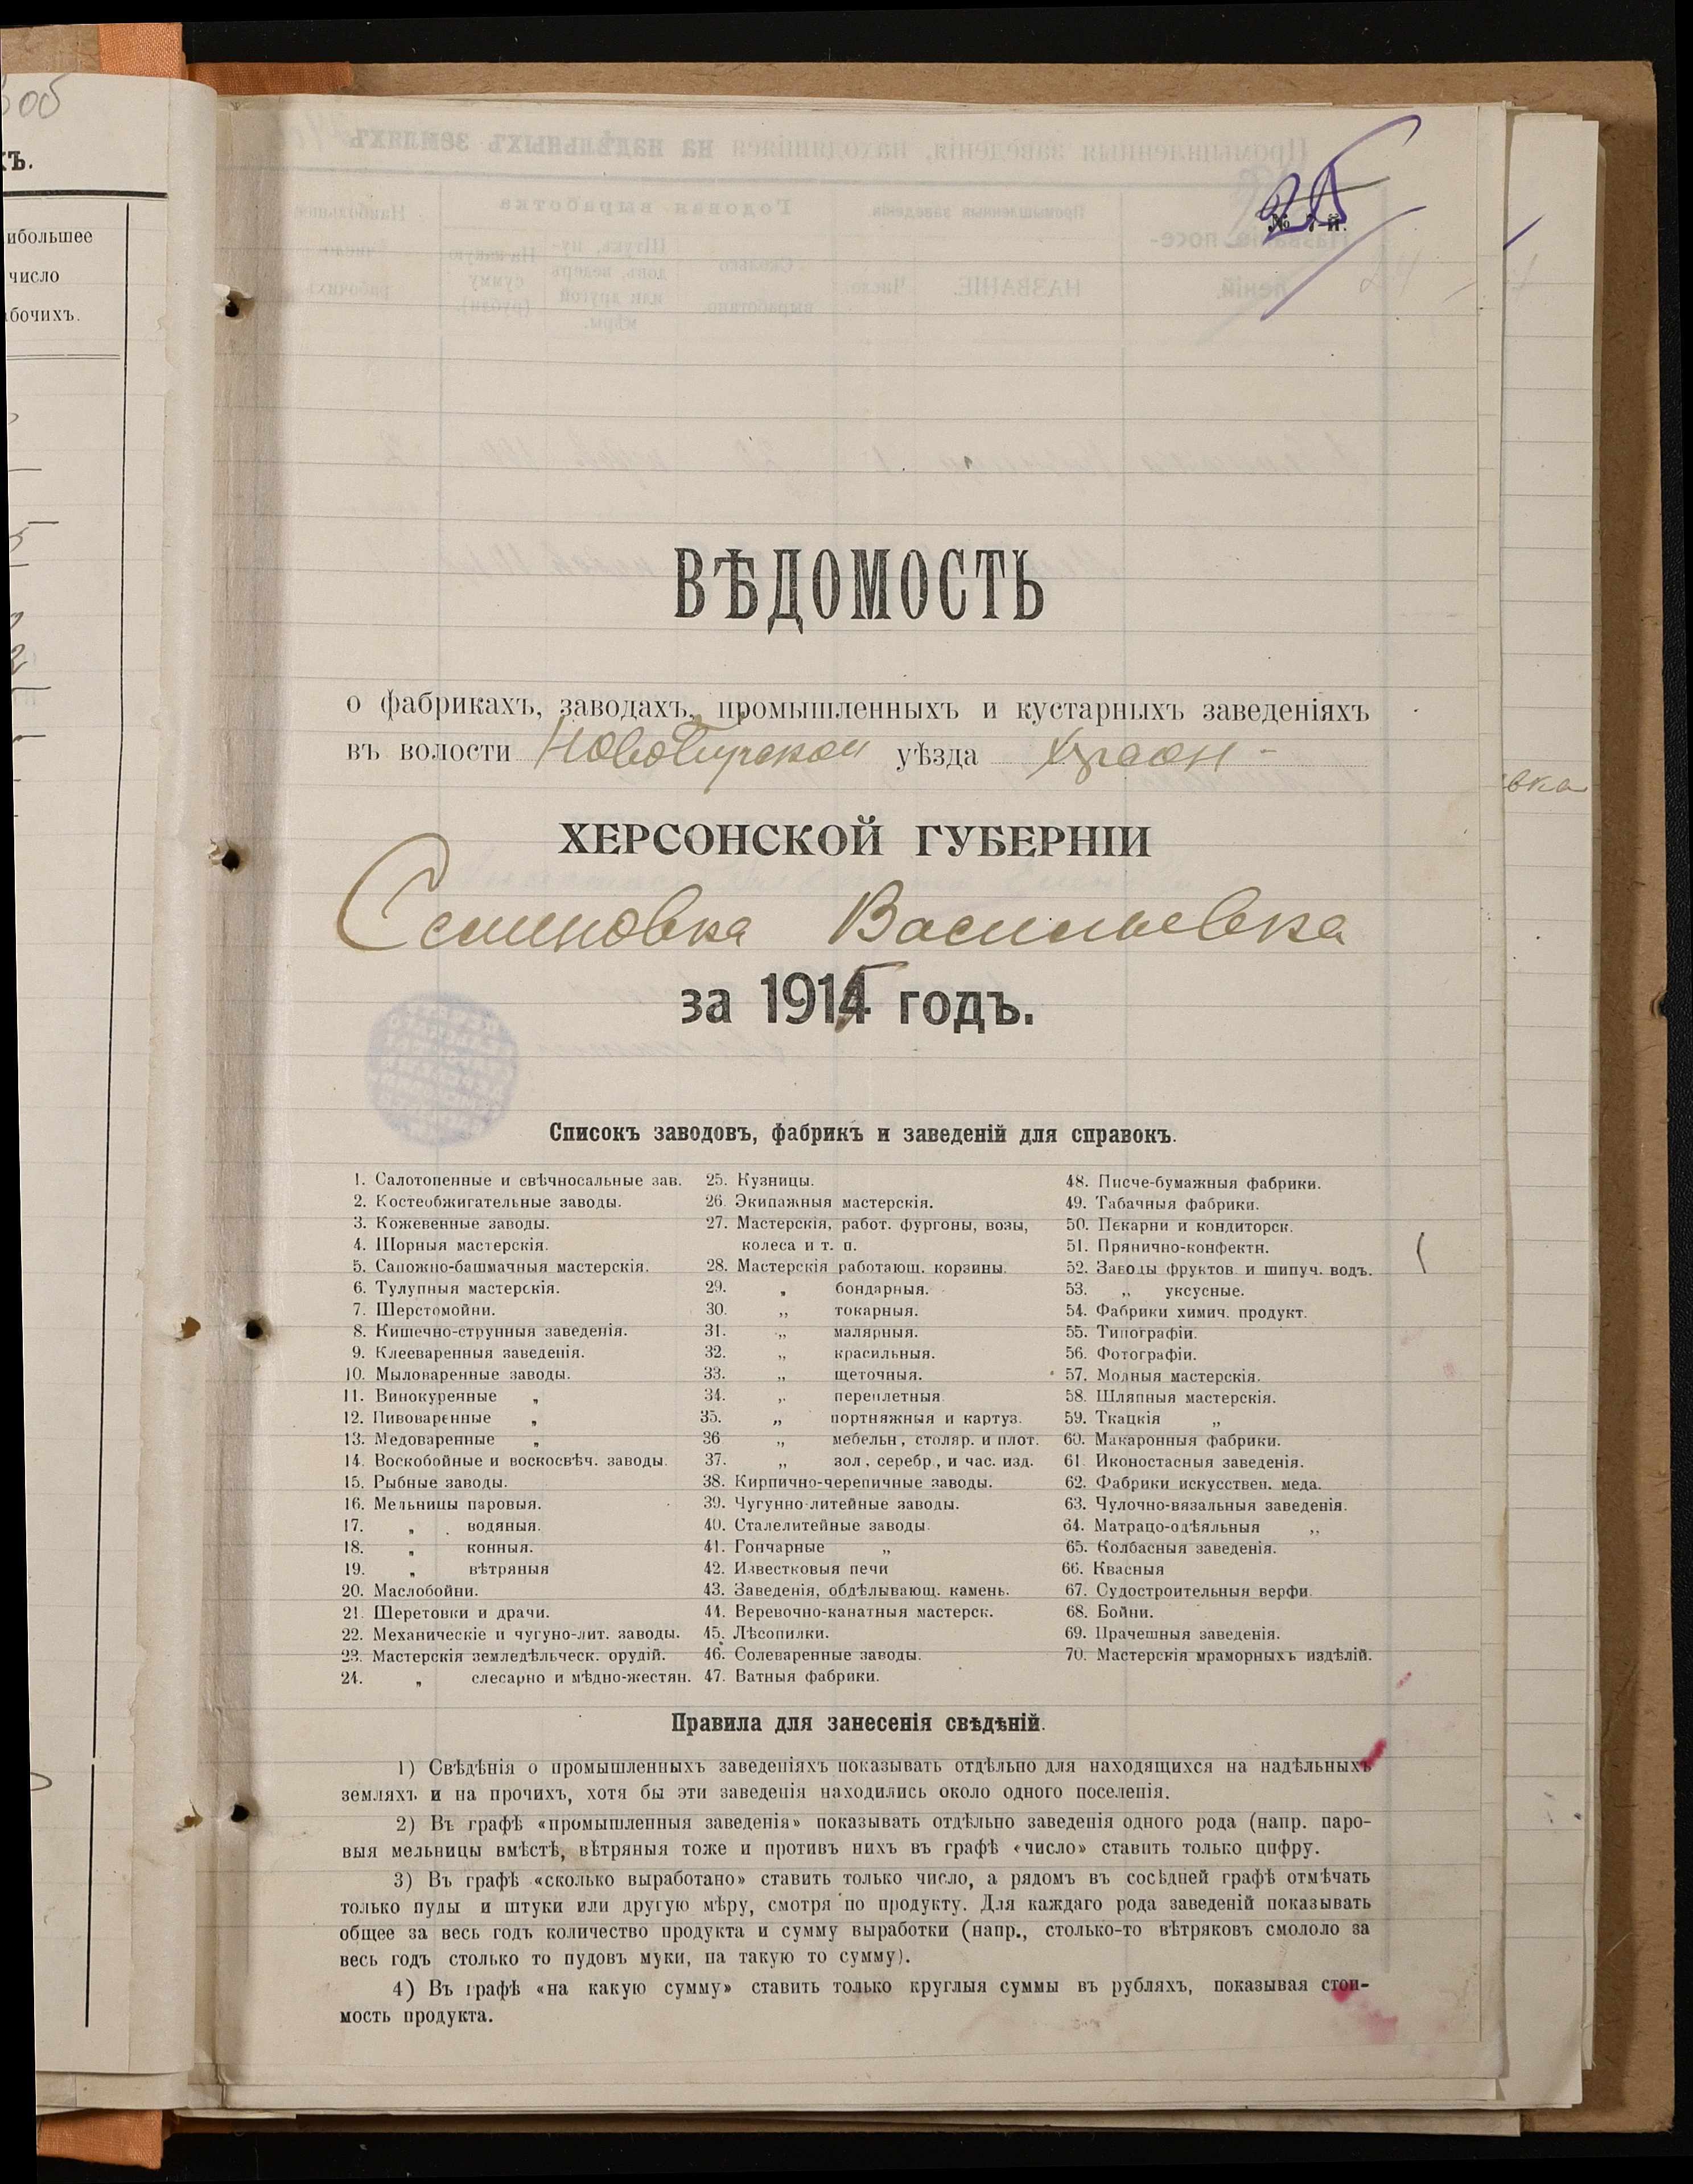 об
хъ.
ибольшее
число
бочихъ.
25
№ 7-й.
ВѢДОМОСТЬ
о фабрикахъ, заводахъ, промышленныхъ и кустарныхъ заведеніяхъ
въ волости Новотирской уѣзда Херсон-
вка
ХЕРСОНСКОЙ ГУБЕРНІИ
Семеновка Васильевка
за 1915 годъ.
Списокъ заводовъ, фабрикъ и заведеній для справокъ.
1. Салотопенные и свѣчносальные зав.
2. Костеобжигательные заводы.
3. Кожевенные заводы.
4. Шорныя мастерскія.
5. Сапожно-башмачныя мастерскія.
6. Тулупныя мастерскія.
7. Шерстомойни.
8. Кишечно-струнныя заведенія.
9. Клееваренныя заведенія.
10. Мыловаренные заводы.
11. Винокуренные „
12. Пивоваренные „
13. Медоваренные „
14. Воскобойные и воскосвѣч. заводы.
15. Рыбные заводы.
16. Мельницы паровыя.
17. „ водяныя.
18. „ конныя.
19. „ вѣтряныя
20. Маслобойни.
21. Шеретовки и драчи.
22. Механическіе и чугуно-лит. заводы.
23. Мастерскія земледѣльческ. орудій.
24. „ слесарно и мѣдно-жестян.
25. Кузницы.
26. Экипажныя мастерскія.
27. Мастерскія, работ. фургоны, возы,
колеса и т. п.
28. Мастерскія работающ. корзины.
29. „ бондарныя.
30. „ токарныя.
31. „ малярныя.
32. „ красильныя.
33. „ щеточныя.
34. „ переплетныя
35. „ портняжныя и картуз.
36 „ мебельн, столяр. и плот.
37. „ зол, серебр, и час. изд.
38. Кирпично-черепичные заводы.
39. Чугунно-литейные заводы.
40. Сталелитейные заводы.
41. Гончарные „
42. Известковыя печи
43. Заведенія, обдѣлывающ. камень.
44. Веревочно-канатныя мастерск.
45. Лѣсопилки.
46. Солеваренные заводы.
47. Ватныя фабрики.
48. Писче-бумажныя фабрики.
49. Табачныя фабрики.
50. Пекарни и кондиторск.
51. Прянично-конфектн.
52. Заводы фруктов. и шипуч. водъ.
53. „ уксусные.
54. Фабрики химич. продукт.
55. Типографіи.
56. Фотографіи.
57. Модныя мастерскія.
58. Шляпныя мастерскія.
59. Ткацкія „
60. Макаронныя фабрики.
61. Иконостасныя заведенія.
62. Фабрики искусствен. меда.
63. Чулочно-вязальныя заведенія.
64. Матрацо-одѣяльныя „
65. Колбасныя заведенія.
66. Квасныя
67. Судостроительныя верфи.
68. Бойни.
69. Прачешныя заведенія.
70. Мастерскія мраморныхъ издѣлій.
Правила для занесенія свѣдѣній.
1) Свѣдѣнія о промышленныхъ заведеніяхъ показывать отдѣльно для находящихся на надѣльныхъ
земляхъ и на прочихъ, хотя бы эти заведенія находились около одного поселенія.
2) Въ графѣ «промышленныя заведенія» показывать отдѣльно заведенія одного рода (напр. паро-
выя мельницы вмѣстѣ, вѣтряныя тоже и противъ нихъ въ графѣ «число» ставить только цифру.
3) Въ графѣ «сколько выработано» ставить только число, а рядомъ въ сосѣдней графѣ отмѣчать
только пуды и штуки или другую мѣру, смотря по продукту. Для каждаго рода заведеній показывать
общее за весь годъ количество продукта и сумму выработки (напр., столько-то вѣтряковъ смололо за
весь годъ столько то пудовъ муки, на такую то сумму).
4) Въ графѣ «на какую сумму» ставить только круглыя суммы въ рубляхъ, показывая стои-
мость продукта.